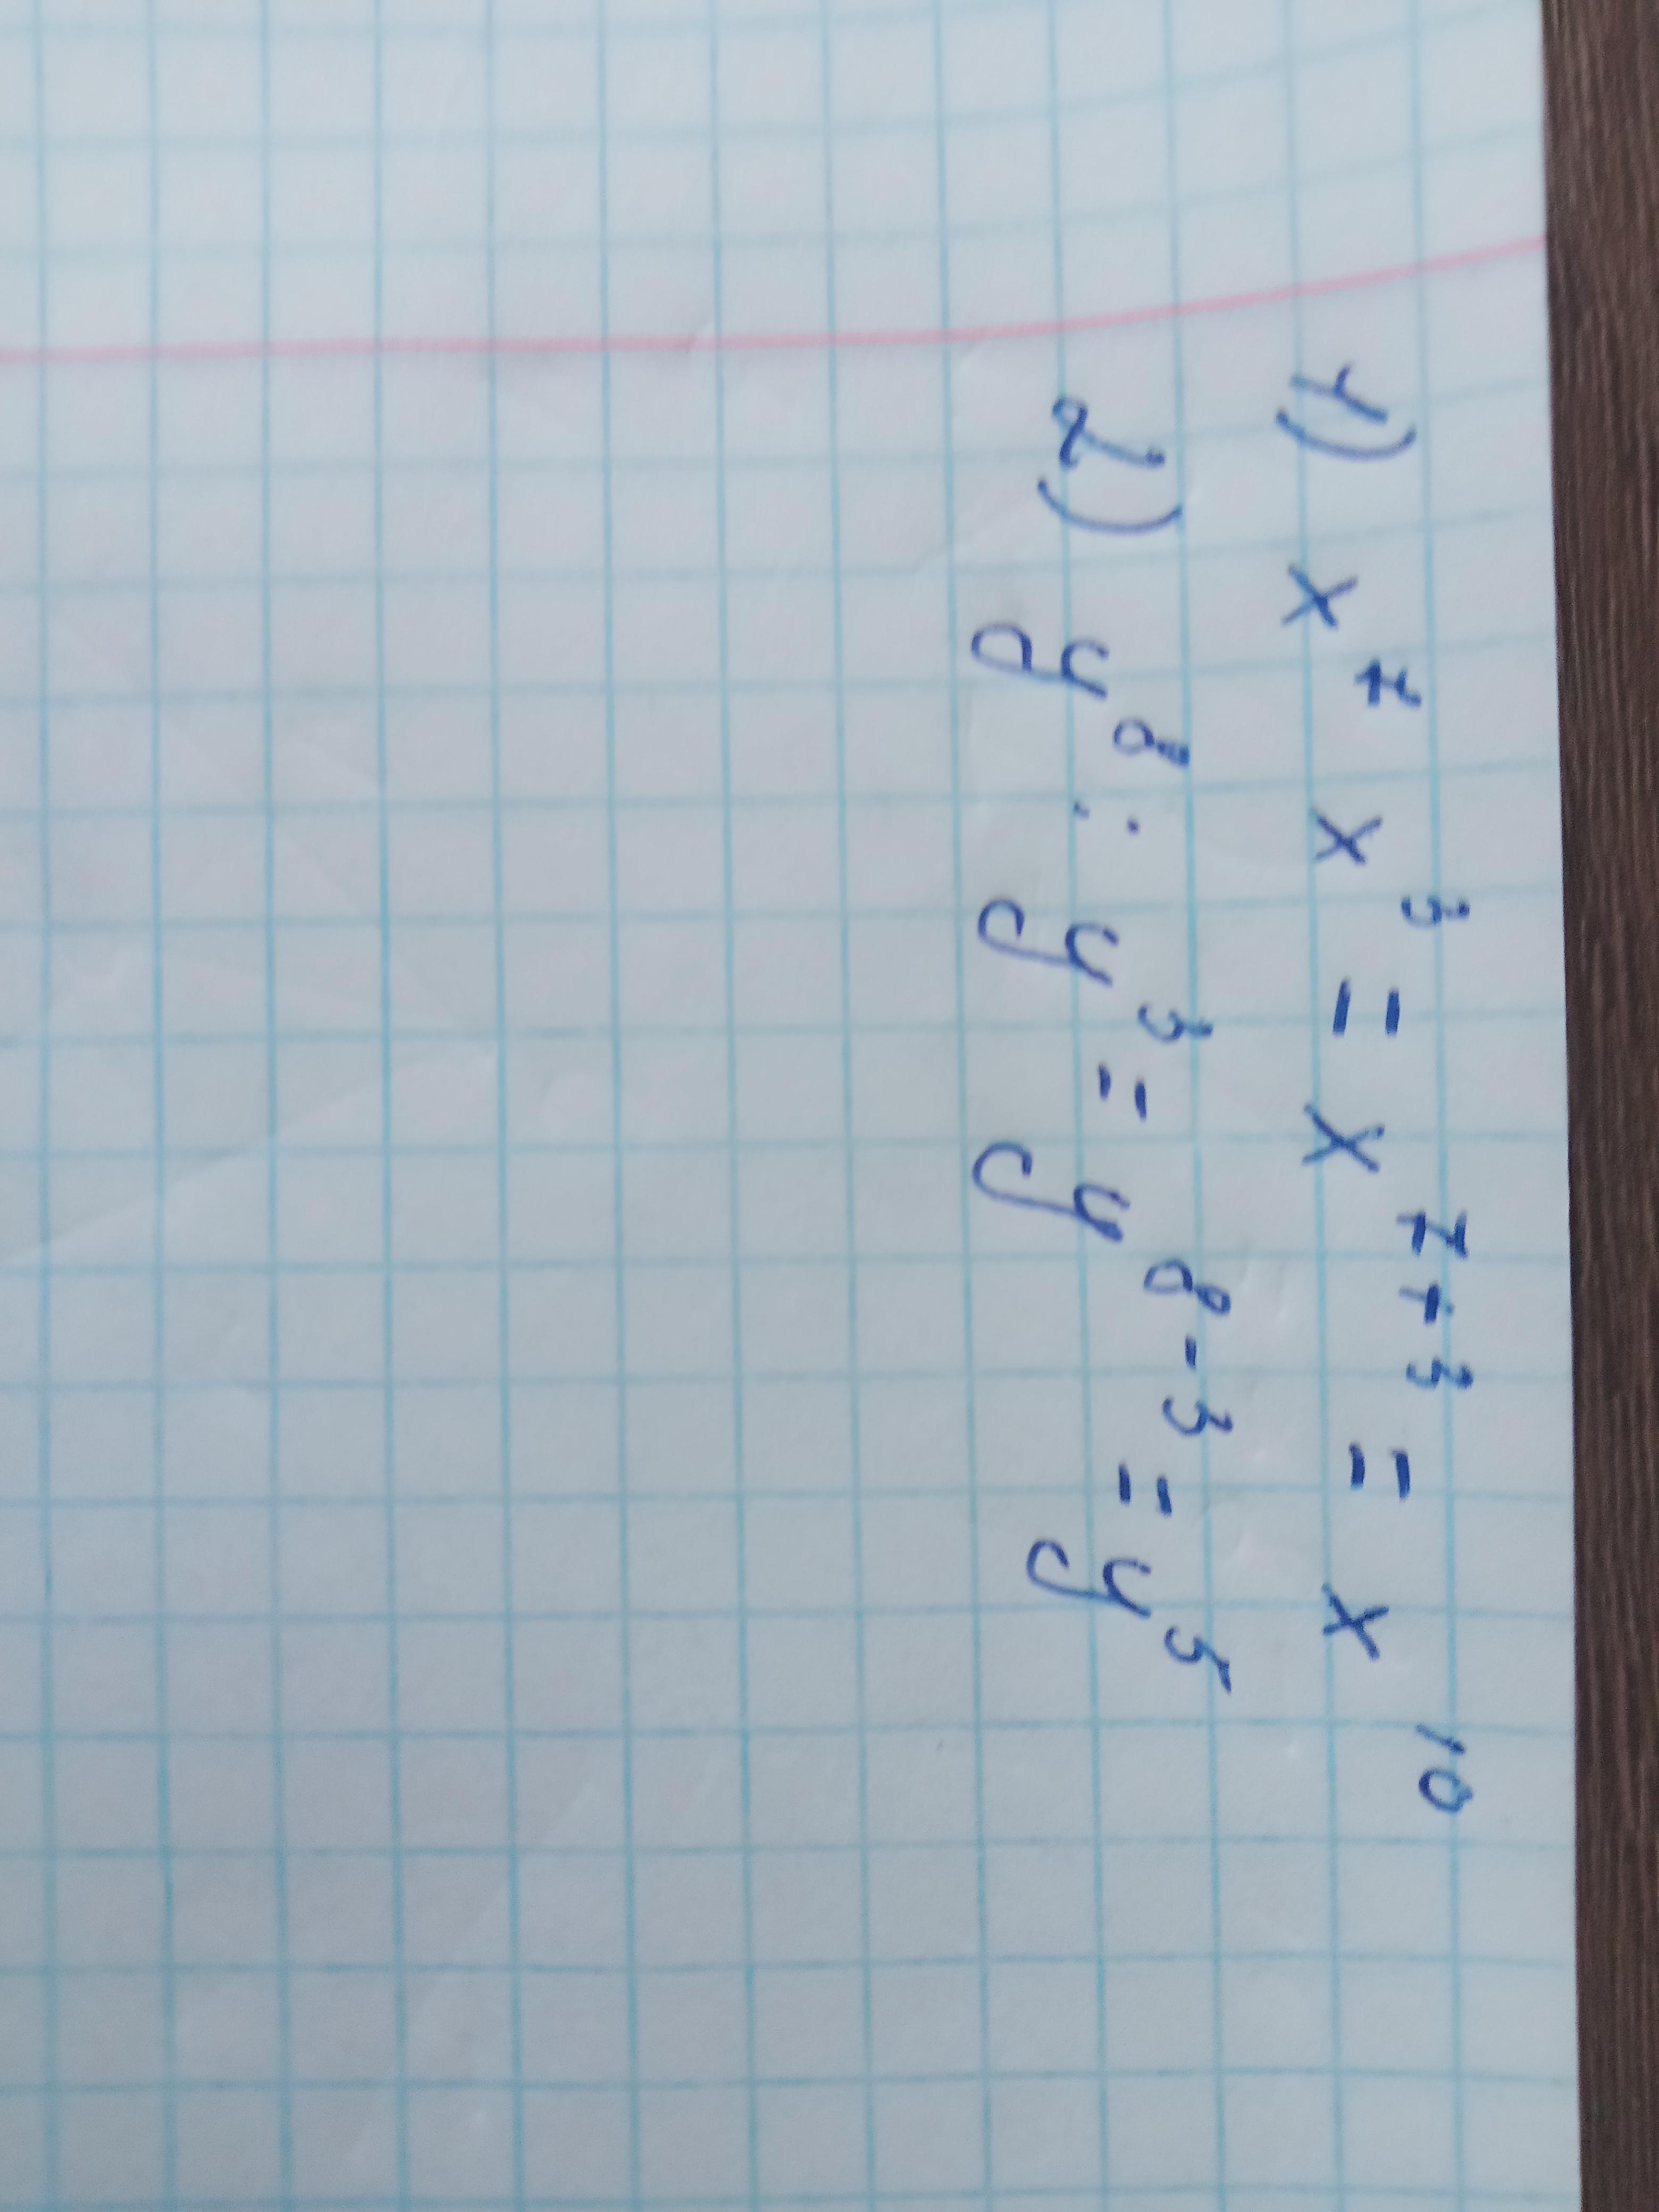 1) x⁷ x³ = x⁷⁺³ = x¹⁰
2) y⁸ : y³ = y⁸⁻³ = y⁵